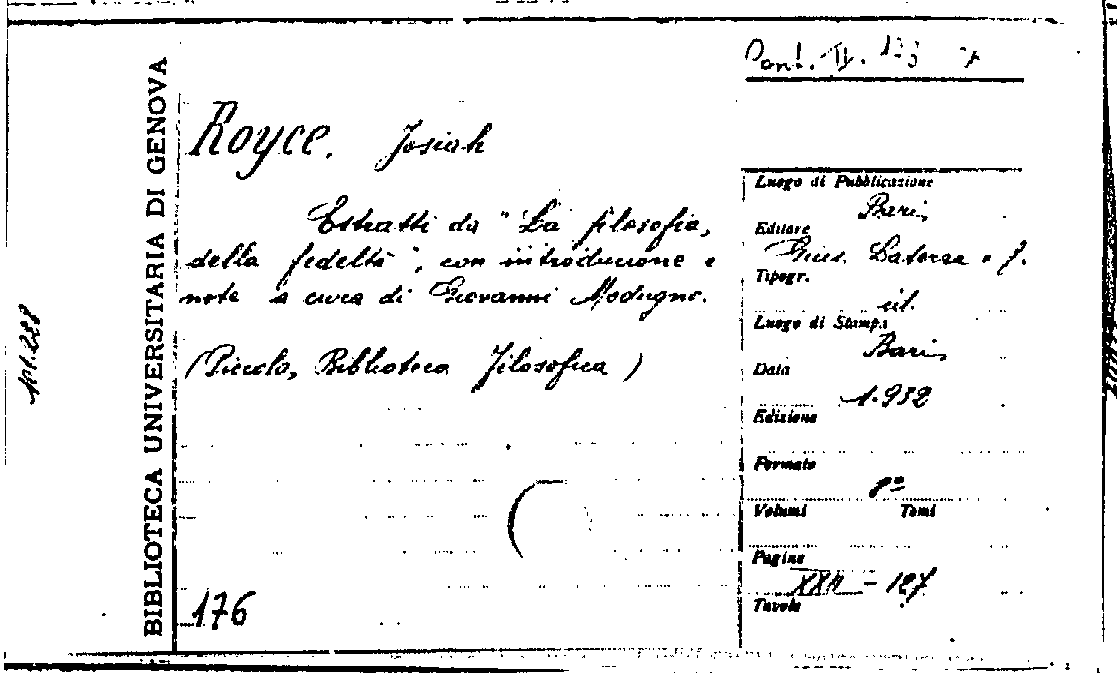 BIBLIOTECA UNIVERSITARIA DI GENOVA
Royce, Josiah
Estratti da "La filosofia
della fedeltà", con introduzione e
note a cura di Giovanni Modugno.
(Piccola Biblioteca Filosofica)
176
Luogo di Pubblicazione
Bari
Editore
Gius. Laterza e f.
Tipogr.
id.
Luogo di Stampa
Bari
Data
1932
Edizione
Formato
8º
Volumi Tomi
Pagine
127
Tavole